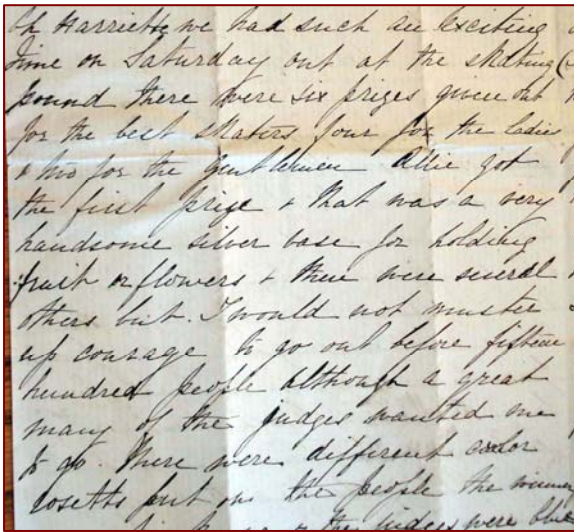 Oh Harriette we had such an exciting
time on Saturday out at the skating
pound there were six prizes given out
for the best skaters four for the ladies
& two for the gentlemen Allie got
the first prize & that was a very
handsome silver vase for holding
fruit or flowers & there were several
others but I would not muster
up courage to go out before fifteen
hundred people although a great
many of the judges wanted me
to go. There were different color
rosetts put on the people the winner
& the judges were blue